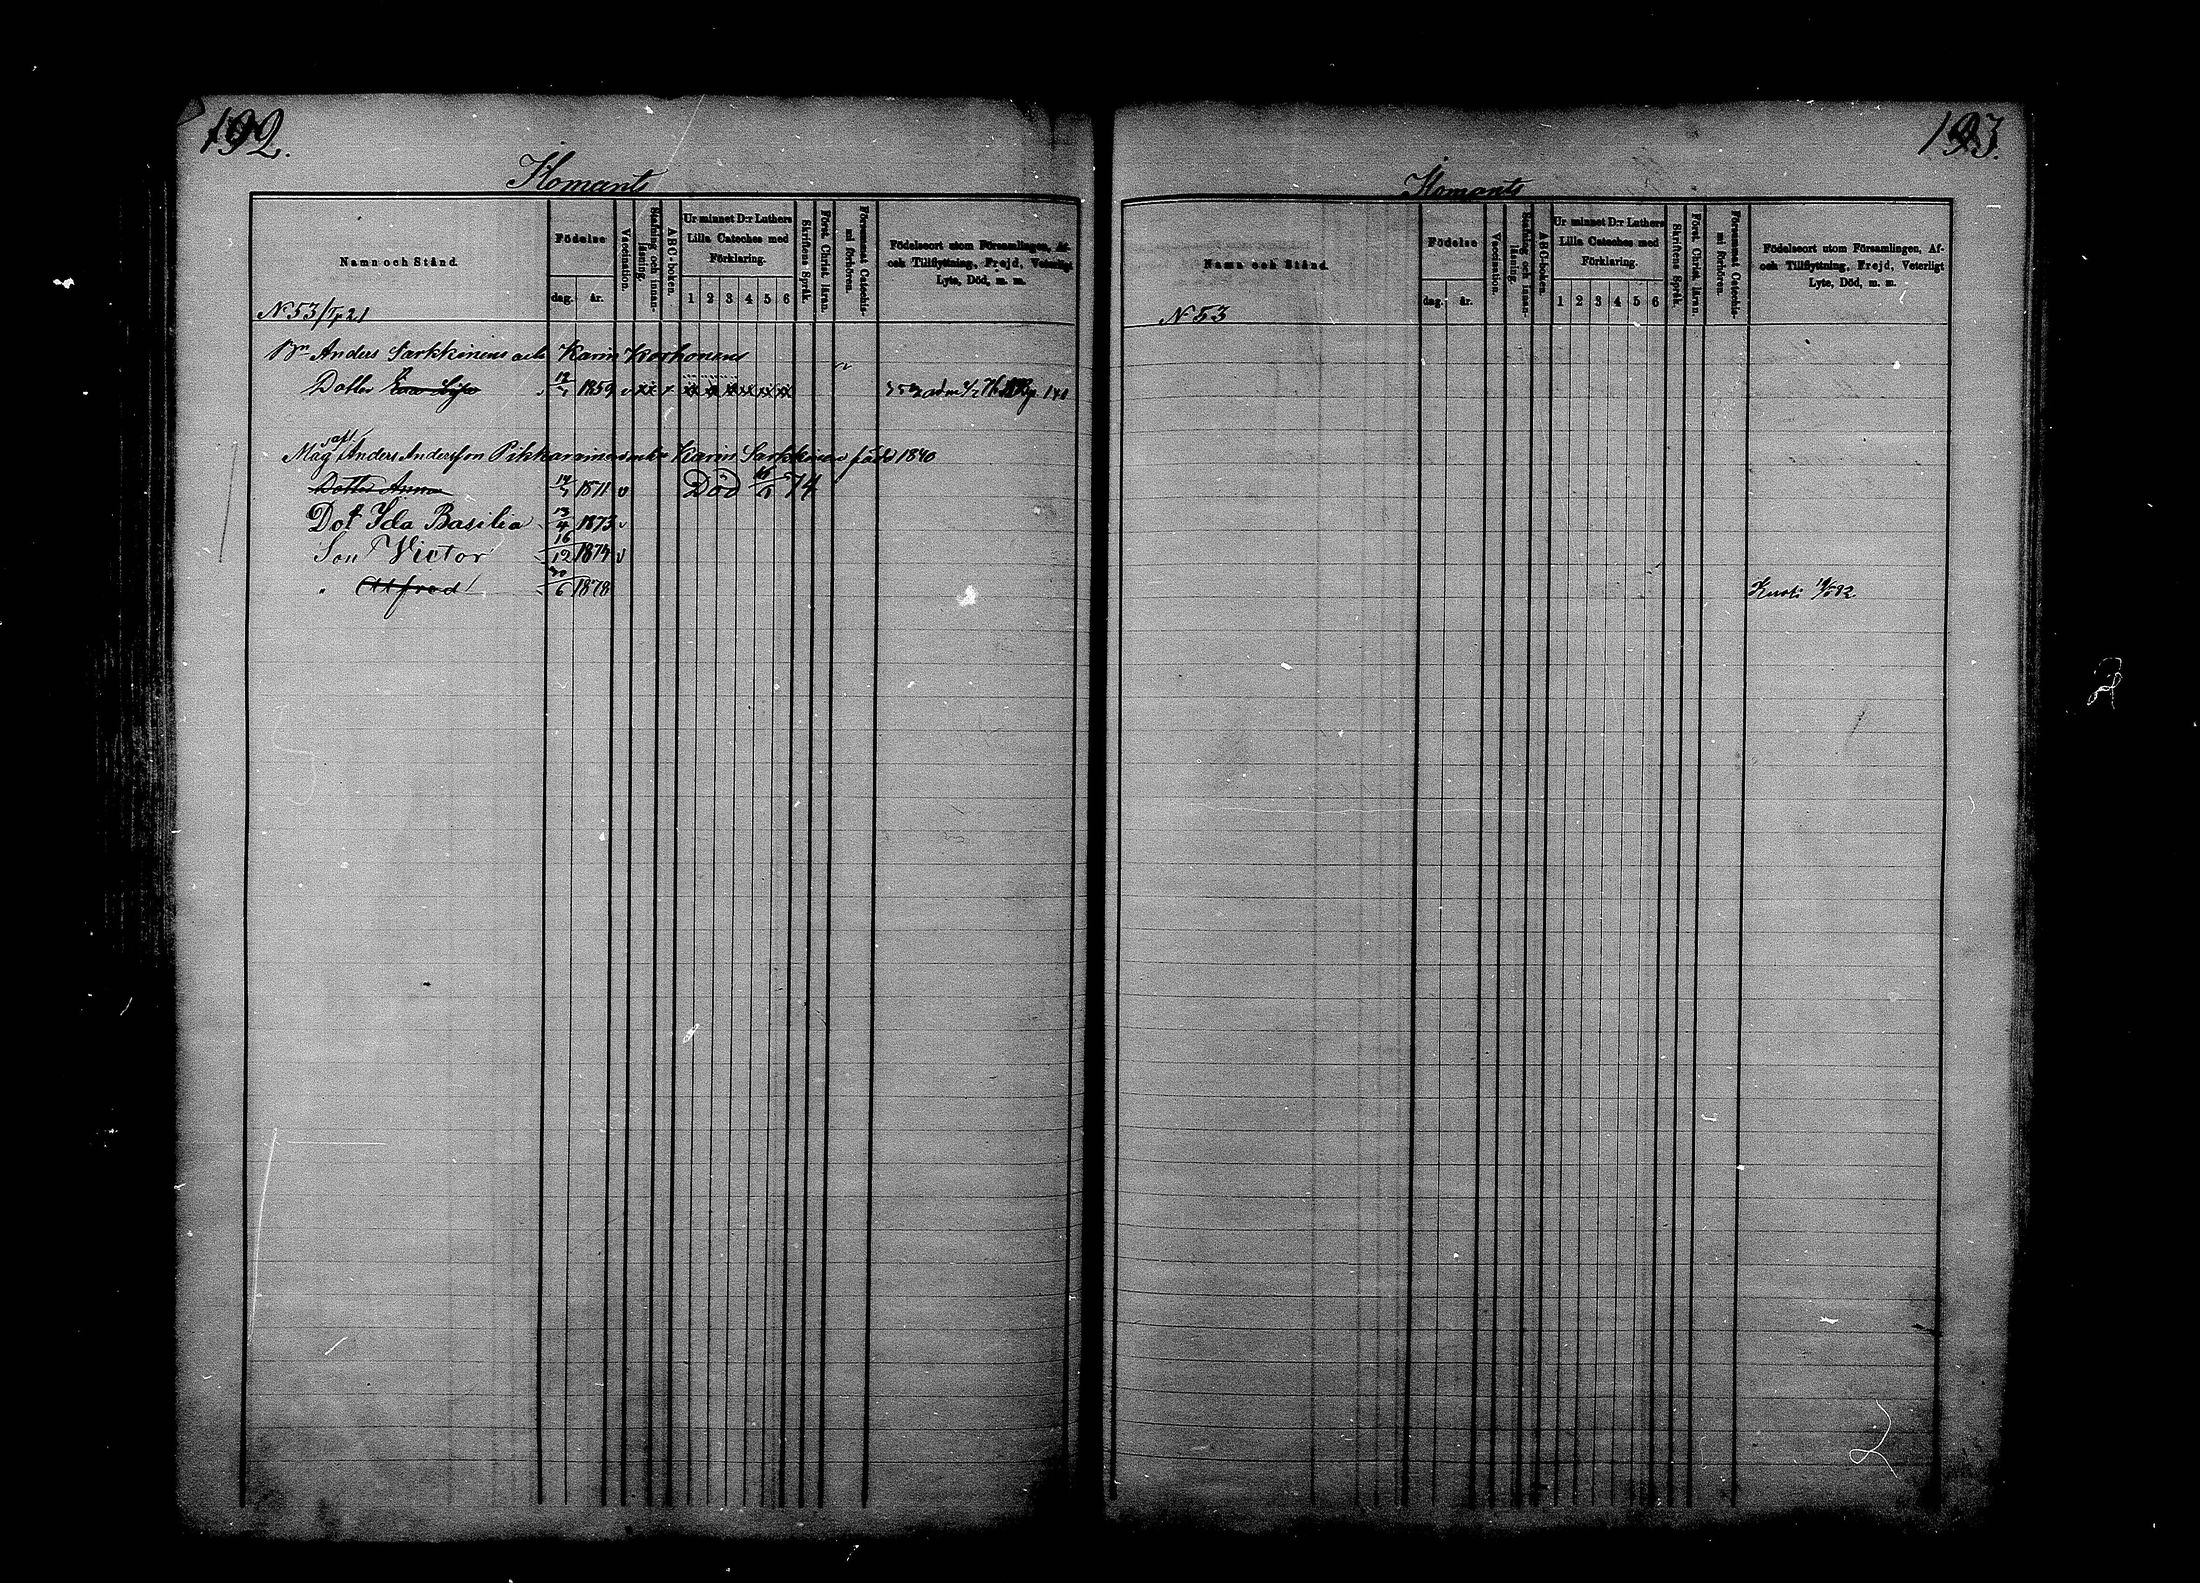 192.
Ilomants
Namn och Stånd.
Födelse
dag. år.
Vaccination.
Stafning och innanläsning.
ABC-boken.
Ur minnet D:r Luthers Lilla Cateches med Förklaring.
1 2 3 4 5 6
Skriftens Språk.
Först. Christ. läran.
Försummat Catechismi förhören.
Födelseort utom Församlingen, Af- och Tillflyttning, Frejd, Veterligt Lyte, Död, m. m.
N 53
Bn Anders Sarkkinens och Karin Korhonens
Dotter Eva Lisa 1859
Måg Anders Andersson Pikkarainens och Karin Sarkkinen född 1840
Dotter Anna 1871 v Död 74
Dot Ida Basilia 13/4 1873 v
Son Victor 16/12 1874 v
" Alfred 30/6 1878
193.
Ilomants
Namn och Stånd.
Födelse
dag. år.
Vaccination.
Stafning och innanläsning.
ABC-boken.
Ur minnet D:r Luthers Lilla Cateches med Förklaring.
1 2 3 4 5 6
Skriftens Språk.
Först. Christ. läran.
Försummat Catechismi förhören.
Födelseort utom Församlingen, Af- och Tillflyttning, Frejd, Veterligt Lyte, Död, m. m.
N 53
2
2